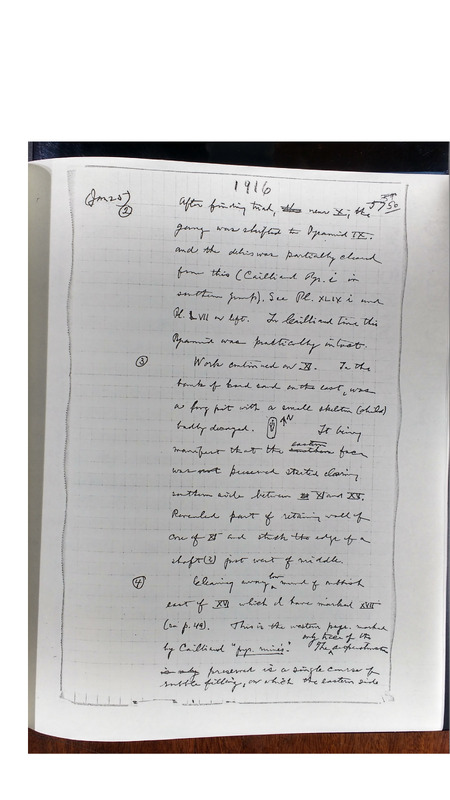 1916
(Jan 25)
② After finding that, near X, the
gang was shifted to Pyramid IX.
and the debris was partially cleared
from this (Cailliaud Pyr. i in
southern group). See Pl. XLIX i and
Pl. LVII on left. In Cailliaud time this
Pyramid was practically intact.
③ Work continued on XI. In the
bank of hard sand on the east, was
a pit with a small skeleton (child)
badly decayed. N It being
manifest that the eastern face
was not preserved started clearing
southern side between XI and XV.
Revealed part of retaining wall of
core of XI and struck the edge of a
shaft (?) just west of middle.
④ Clearing away low mound of rubbish
east of XV which I have marked XVII
(on p. 49). This is the western pyr. marked
by Cailliaud "pyr. ruinés". The only trace of the
preserved is a single course of
rubble filling, on which the eastern side